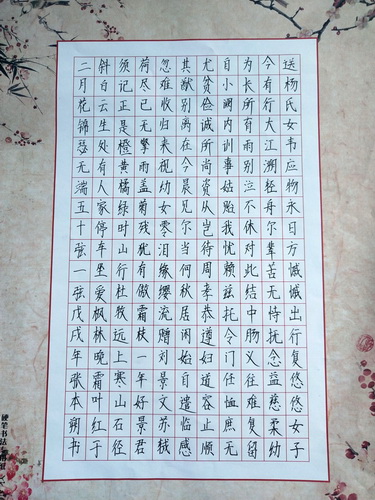 送杨氏女韦应物永日方慼慼出行复悠悠女子
今有行大江溯轻舟尔辈苦无恃抚念益慈柔幼
为长所育两别泣不休对此结中肠义往难复留
自小阙内训事姑贻我忧赖兹托令门任恤庶无
尤贫俭诚所尚资从岂待周孝恭遵妇道容止顺
其猷别离在今晨见尔当何秋居闲始自遣临感
忽难收归来视幼女零泪缘缨流赠刘景文苏轼
荷尽已无擎雨盖菊残犹有傲霜枝一年好景君
须记正是橙黄橘绿时山行杜牧远上寒山石径
斜白云生处有人家停车坐爱枫林晚霜叶红于
二月花锦瑟无端五十弦一弦戊戌年张本朔书
硬笔书法